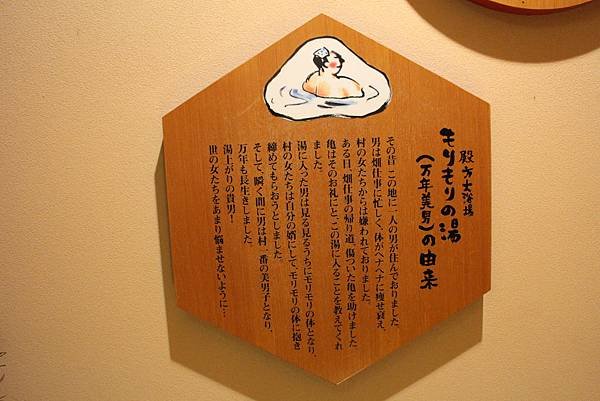 殿方大浴場
もりもりの湯
(万年美男)の由来
その昔、この地に一人の男が住んでおりました。
男は畑仕事に忙しく、体がヘナヘナに痩せ衰え、
村の女たちからは嫌われておりました。
ある日、畑仕事の帰り道、傷ついた亀を助けました。
亀はそのお礼にと、この湯に入ることを教えてくれ
ました。
湯に入った男は見る見るうちにモリモリの体となり、
村の女たちは自分の婿にして、モリモリの体に抱き
締めてもらおうとしました。
そして、瞬く間に男は村一番の美男子となり、
万年も長生きしました。
湯上がりの貴男!
世の女たちをあまり悩ませないように…